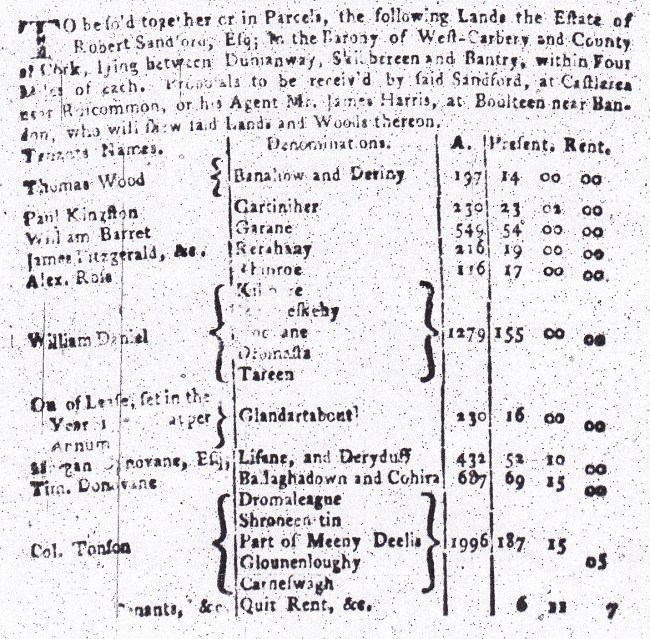 TO be so'd together or in Parcels, the following Lands the Estate of
Robert Sandford, Esq; in the Barony of West-Carbery and County
of Cork, lying between Dunianway, Skilbereen and Bantry, within Four
Miles of each. Proposals to be receiv'd by said Sandford, at Castlerea
near Roscommon, or his Agent Mr. James Harris, at Boulteen near Ban-
don, who will shew said Lands and Woods thereon.
Tenants Names. Denominations. A. Present. Rent.
Thomas Wood { Banahow and Deriny 197 14 00 00
Paul Kingston Gartiniher 230 23 02 00
William Barret Garane 549 54 00 00
James Fitzgerald, &c. Kerahnay 216 19 00 00
Alex. Ross 116 17 00 00
William Daniel { Dromasta } 1279 155 00 00
Tareen
Out of Lease, set in the
Year at per } Glandartabout 230 16 00 00
Annum
Donovane, Esq; Lisane, and Deryduff 432 52 10 00
Tim. Donovane Ballaghadown and Cohira 687 69 15 00
Dromaleague
Shroneentin
Col. Tonson { Part of Meeny Deelis } 1996 187 15 05
Glounenloughy
Carneswagh
Tenants, &c Quit Rent, &c. 6 11 7